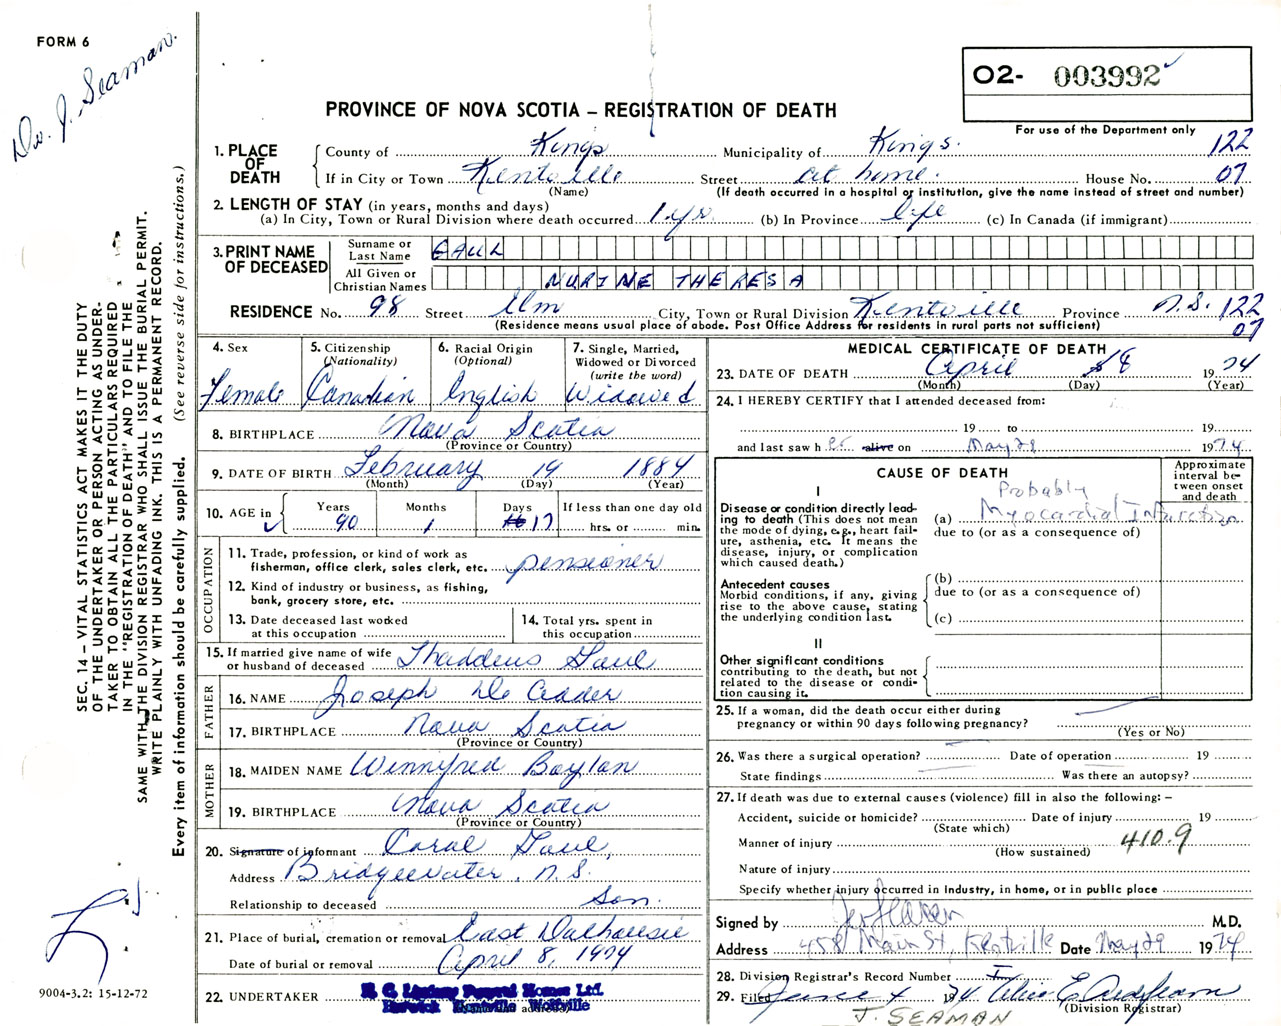 FORM 6
Dr. J. Seaman.
O2- 003992
PROVINCE OF NOVA SCOTIA – REGISTRATION OF DEATH
For use of the Department only
1. PLACE OF DEATH
County of Kings Municipality of Kings. 122
If in City or Town Kentville Street at home. House No. 07
(Name) (If death occurred in a hospital or institution, give the name instead of street and number)
2. LENGTH OF STAY (in years, months and days)
(a) In City, Town or Rural Division where death occurred 1 yr (b) In Province life (c) In Canada (if immigrant)
3. PRINT NAME OF DECEASED
Surname or Last Name GAUL
All Given or Christian Names NURINE THERESA
RESIDENCE No. 98 Street Elm City, Town or Rural Division Kentville Province N.S. 122
(Residence means usual place of abode. Post Office Address for residents in rural parts not sufficient) 07
4. Sex Female
5. Citizenship (Nationality) Canadian
6. Racial Origin (Optional) English
7. Single, Married, Widowed or Divorced (write the word) Widowed
8. BIRTHPLACE Nova Scotia
(Province or Country)
9. DATE OF BIRTH February 19 1884
(Month) (Day) (Year)
10. AGE in Years 90 Months 1 Days 17 If less than one day old hrs. or min.
OCCUPATION
11. Trade, profession, or kind of work as fisherman, office clerk, sales clerk, etc. pensioner
12. Kind of industry or business, as fishing, bank, grocery store, etc.
13. Date deceased last worked at this occupation
14. Total yrs. spent in this occupation
15. If married give name of wife or husband of deceased Thaddeus Gaul
FATHER
16. NAME Joseph De Adder
17. BIRTHPLACE Nova Scotia
(Province or Country)
MOTHER
18. MAIDEN NAME Winnifred Boylan
19. BIRTHPLACE Nova Scotia
(Province or Country)
20. Signature of informant Caral Gaul,
Address Bridgewater, N.S.
Relationship to deceased Son.
21. Place of burial, cremation or removal East Dalhousie
Date of burial or removal April 8, 1974
22. UNDERTAKER H. C. Lindsay Funeral Homes Ltd.
Berwick Kentville Wolfville
MEDICAL CERTIFICATE OF DEATH
23. DATE OF DEATH April 8 1974
(Month) (Day) (Year)
24. I HEREBY CERTIFY that I attended deceased from:
19 to 19
and last saw her alive on May 29 1974
CAUSE OF DEATH
Approximate interval between onset and death
I
Disease or condition directly leading to death (This does not mean the mode of dying, e.g., heart failure, asthenia, etc. It means the disease, injury, or complication which caused death.)
(a) Probably Myocardial Infarction
due to (or as a consequence of)
Antecedent causes
Morbid conditions, if any, giving rise to the above cause, stating the underlying condition last.
(b)
due to (or as a consequence of)
(c)
II
Other significant conditions contributing to the death, but not related to the disease or condition causing it.
25. If a woman, did the death occur either during pregnancy or within 90 days following pregnancy?
(Yes or No)
26. Was there a surgical operation? Date of operation 19
State findings Was there an autopsy?
27. If death was due to external causes (violence) fill in also the following: –
Accident, suicide or homicide? Date of injury 19
(State which)
Manner of injury 410.9
(How sustained)
Nature of injury
Specify whether injury occurred in industry, in home, or in public place
Signed by M.D.
Address 458 Main St, Kentville Date May 29 1974
28. Division Registrar's Record Number
29. Filed June 4 1974 Alice E
(Division Registrar)
J. SEAMAN
SEC. 14 – VITAL STATISTICS ACT MAKES IT THE DUTY
OF THE UNDERTAKER OR PERSON ACTING AS UNDER-
TAKER TO OBTAIN ALL THE PARTICULARS REQUIRED
IN THE "REGISTRATION OF DEATH" AND TO FILE THE
SAME WITH THE DIVISION REGISTRAR WHO SHALL ISSUE THE BURIAL PERMIT.
WRITE PLAINLY WITH UNFADING INK. THIS IS A PERMANENT RECORD.
Every item of information should be carefully supplied. (See reverse side for instructions.)
9004-3.2: 15-12-72